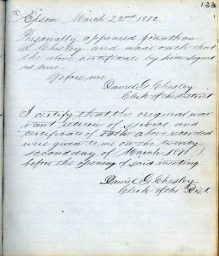 133
Epsom March 22nd 1870.
Personally appeared Jonathan
and made oath that
the above certificate by him signed
is true.
Before me
Daniel G Chesley
Clerk of the District
I certify that the original war-
rant return of service and
certificate of oath above recorded
were given to me on the twenty
second day of March 1870
before the opening of said meeting
Daniel G. Chesley
Clerk of the Dist.